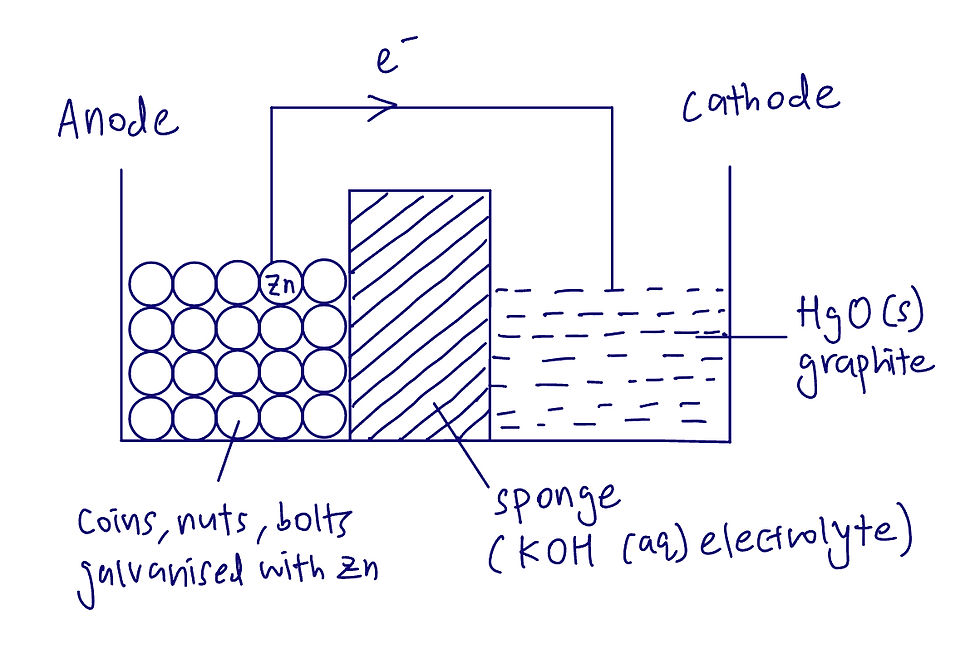 e⁻
Anode
Cathode
Zn
HgO (s)
graphite
coins, nuts, bolts
galvanised with Zn
sponge
(KOH (aq) electrolyte)